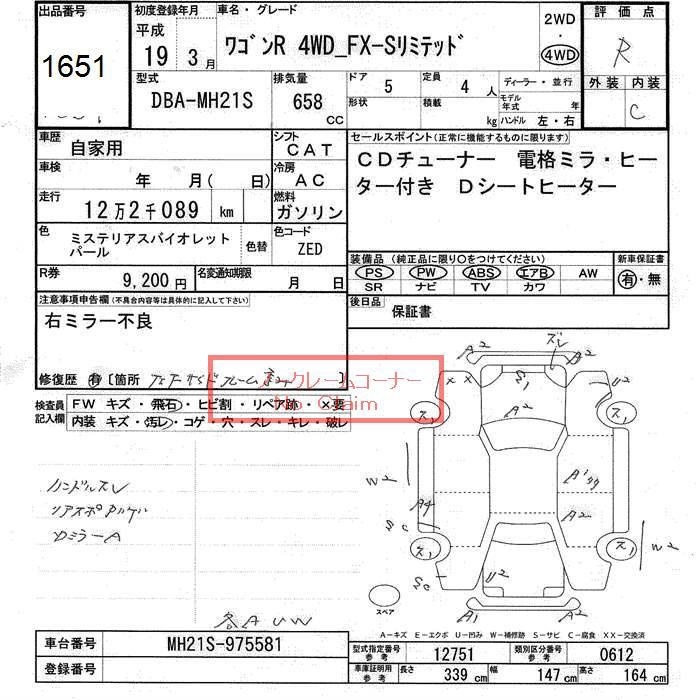 出品番号
1651
初度登録年月
平成
19 3月
車名・グレード
ワゴンR 4WD_FX-Sリミテッド
2WD
・
4WD
評価点
R
外装 内装
C
型式
DBA-MH21S
排気量
658
CC
ドア 5
定員 4 人
形状
積載 kg
ディーラー・並行
モデル年式 年
ハンドル 左・右
車歴
自家用
シフト
CAT
車検
年 月( 日)
冷房
AC
走行
12万2千089 km
燃料
ガソリン
色
ミステリアスバイオレット
パール
色替
色コード
ZED
R券
9,200円
名変通知期限
月 日
セールスポイント(正常に機能するものに限ります)
CDチューナー 電格ミラ・ヒー
ター付き Dシートヒーター
装備品(純正品に限り○をつけてください)
PS PW ABS エアB AW
SR ナビ TV カワ
新車保証書
有・無
後日品
保証書
注意事項申告欄(不具合内容等は具体的に記入して下さい)
右ミラー不良
修復歴 有 [箇所
]
ノークレームコーナー
No Claim
検査員
記入欄
FW キズ・飛石・ヒビ割・リペア跡・×要
内装 キズ・汚レ・コゲ・穴・スレ・キレ・破レ
ハンドルスレ
DミラーA
各AUW
A2
ズレ
A2
S1
××
U2
ス1
A2
ス1
W2
A4
A2
Sc
ス1
ス1
W2
Sc
U2
スペア
A1
A2
A-キズ E-エクボ U-凹み W-補修跡 S-サビ C-腐食 XX-交換済
車台番号
MH21S-975581
登録番号
型式指定番号
参考
12751
類別区分番号
参考
0612
車庫証明用
参考
長さ 339 cm
幅 147 cm
高さ 164 cm